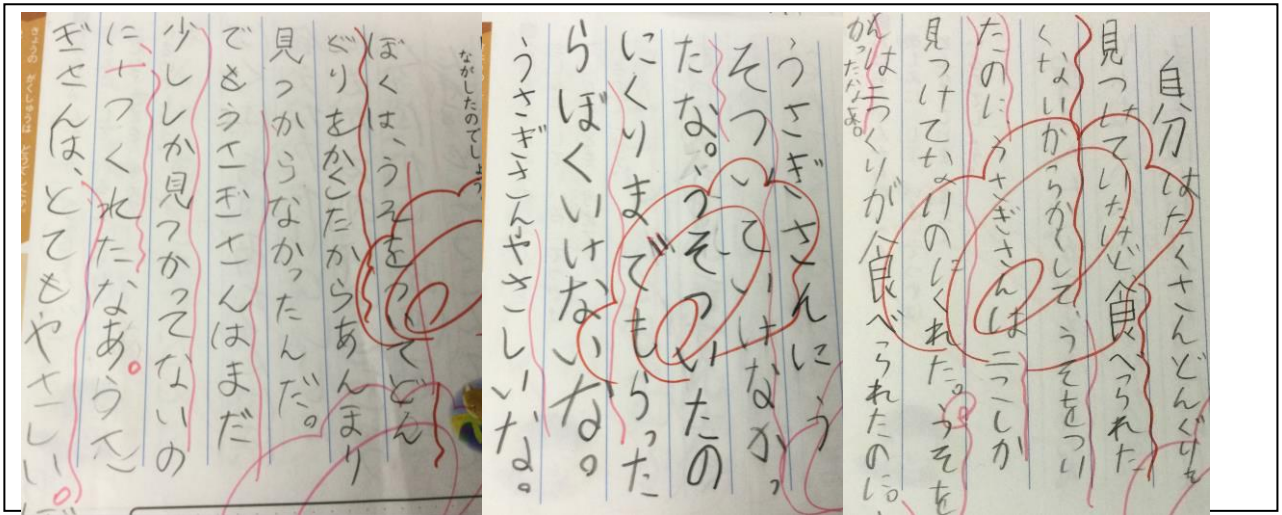 ながしたのでしょう。
ぼくは、うそをついてどん
ぐりをかくしたからあんまり
見つからなかったんだ。
でもうさぎさんはまだ
少ししか見つかってないの
に十つくれたなあうさ
ぎさんは、とてもやさしい
うさぎさんにう
そついていけなかっ
たな。うそついたの
にくりまでもらった
らぼくいけないな。
うさぎさんやさしいな。
自分はたくさんどんぐりを
見つけていたけど食べられた
くないからかくして、うそをつい
たのに、うさぎさんは二つしか
見つけてないのにくれた。うそを
はニつくりが食べられたのに。
かったなあ。